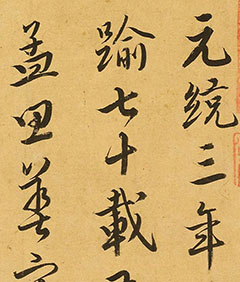 元統三年
踰七十載
孟